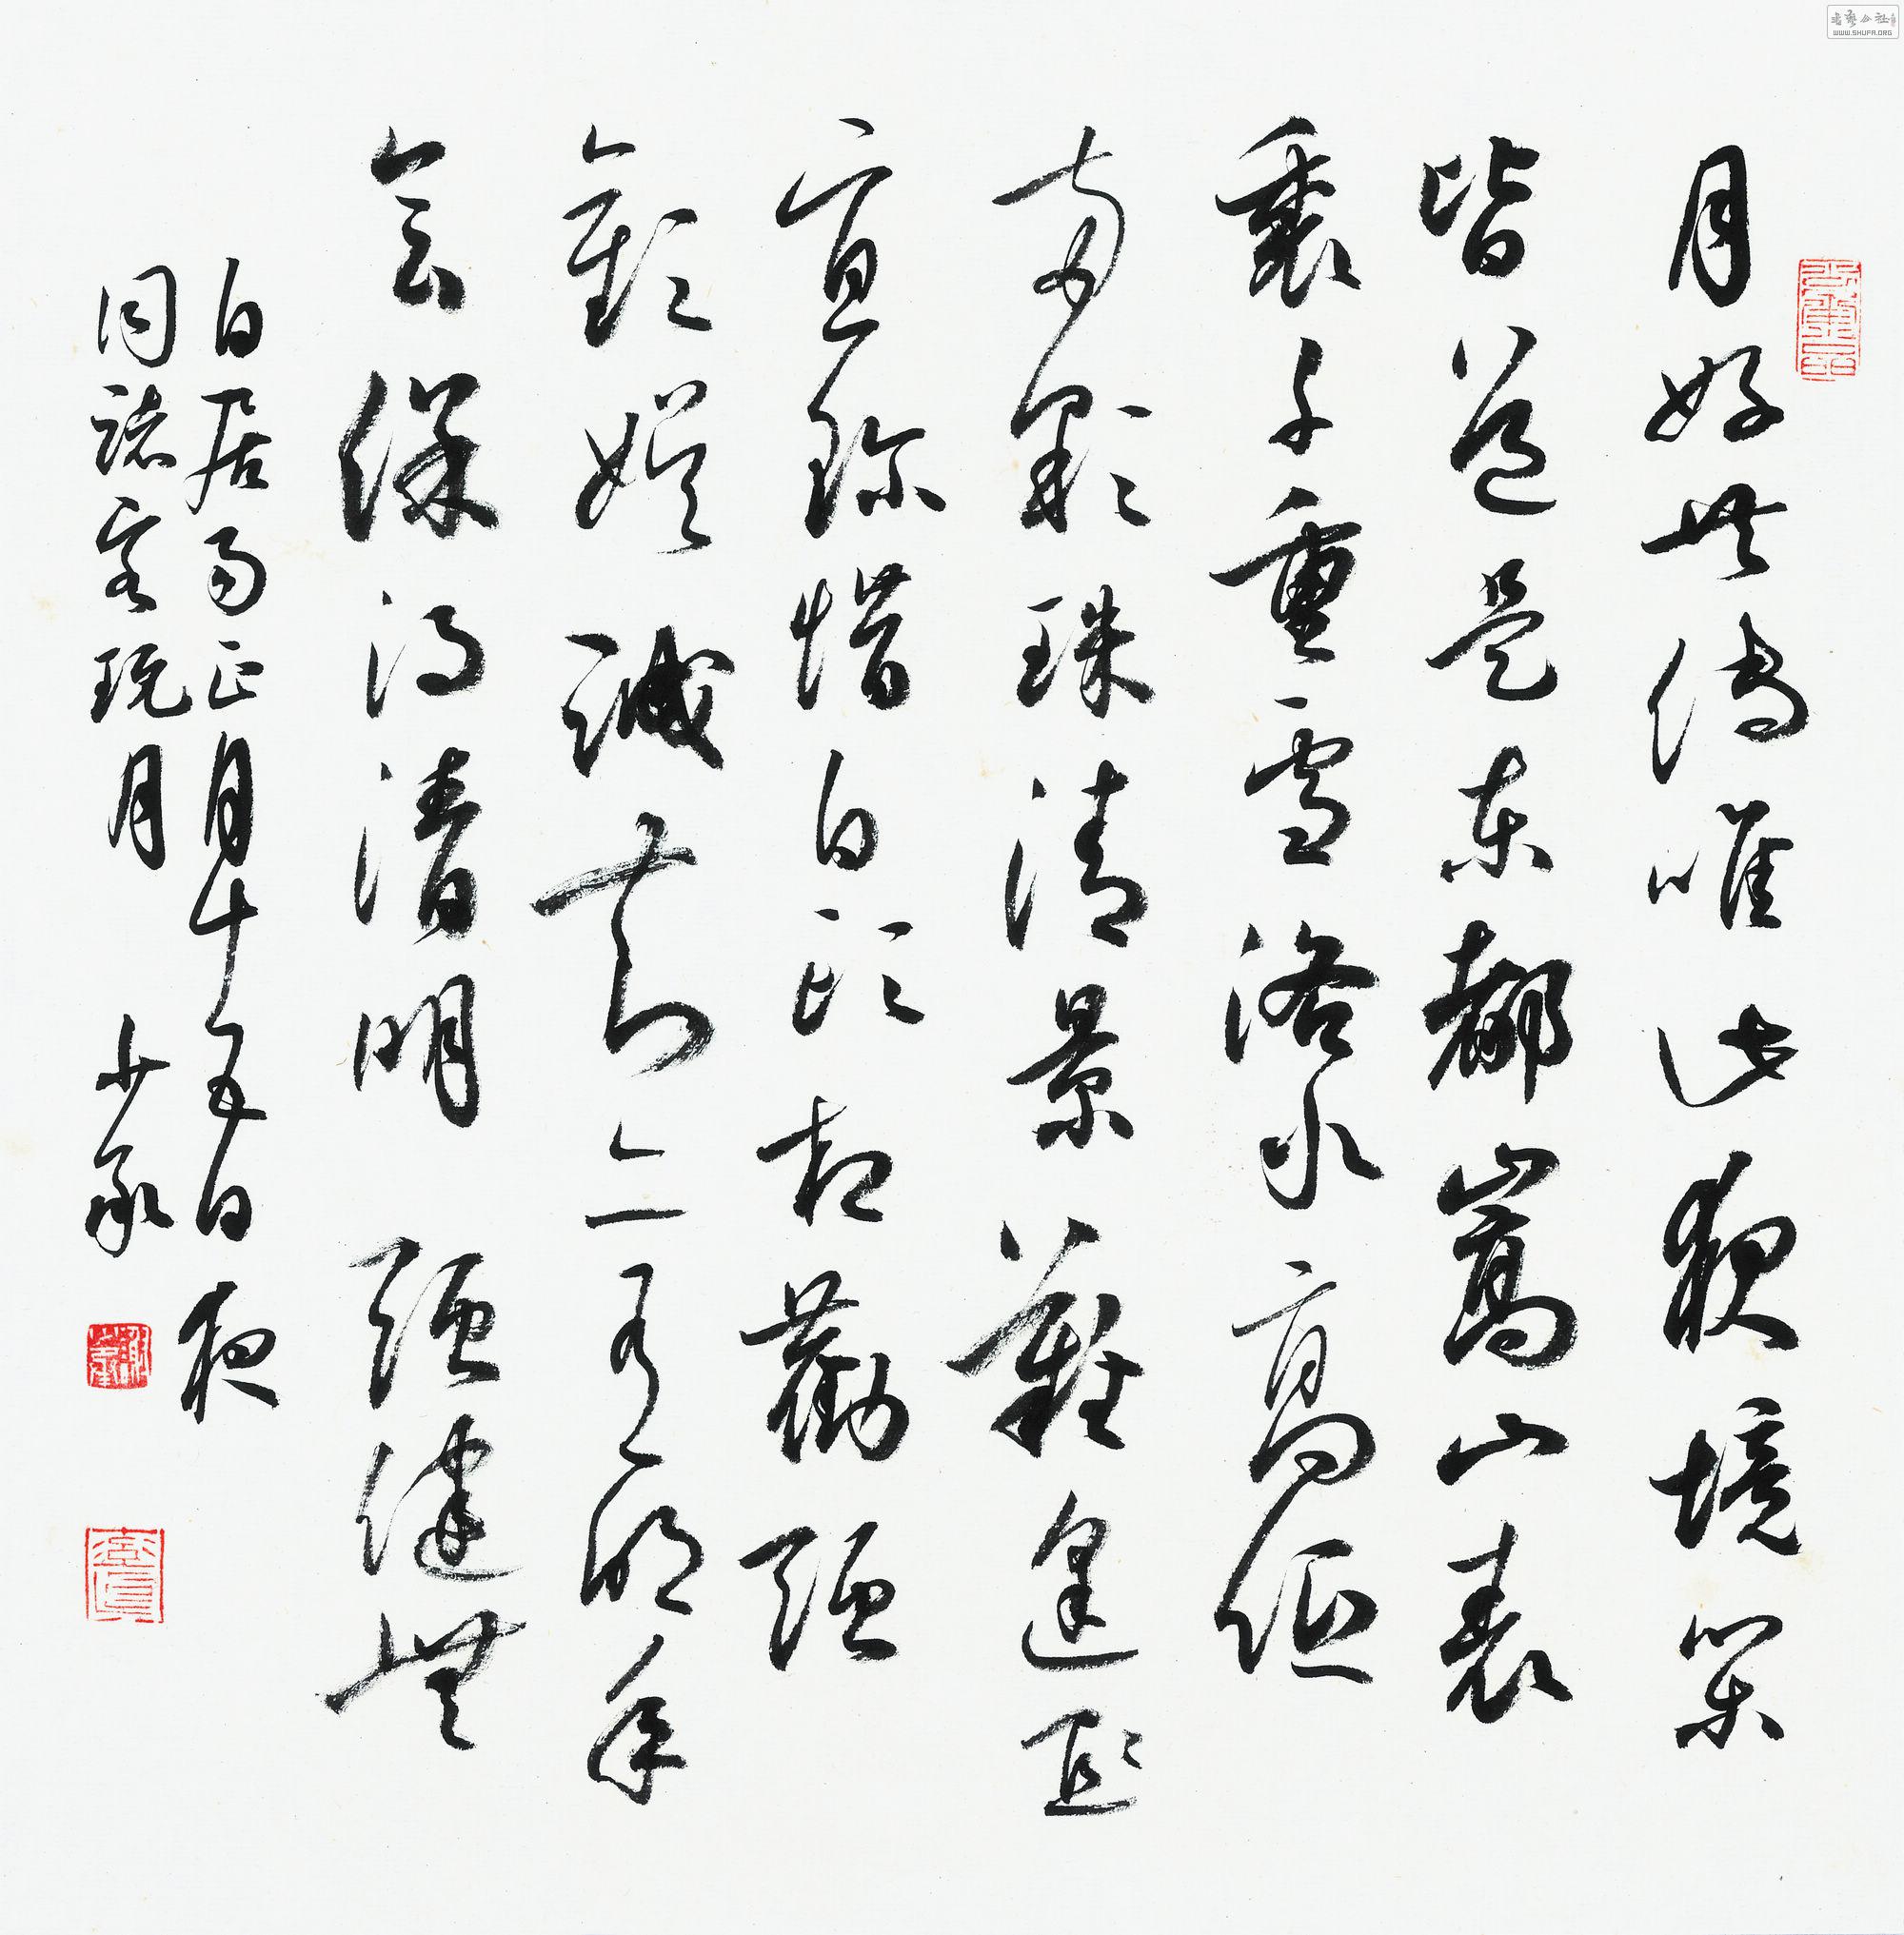 月好共傳唯此夜境閑
皆道是東都嵩山表
裏千重雪洛水高低
兩顆珠清景難逢
宜珍惜白頭相勸強
歡娛誠知亦有明年
會保得清明強健無
白居易正月十五日夜
同諸客玩月
WWW.SHUFA.ORG